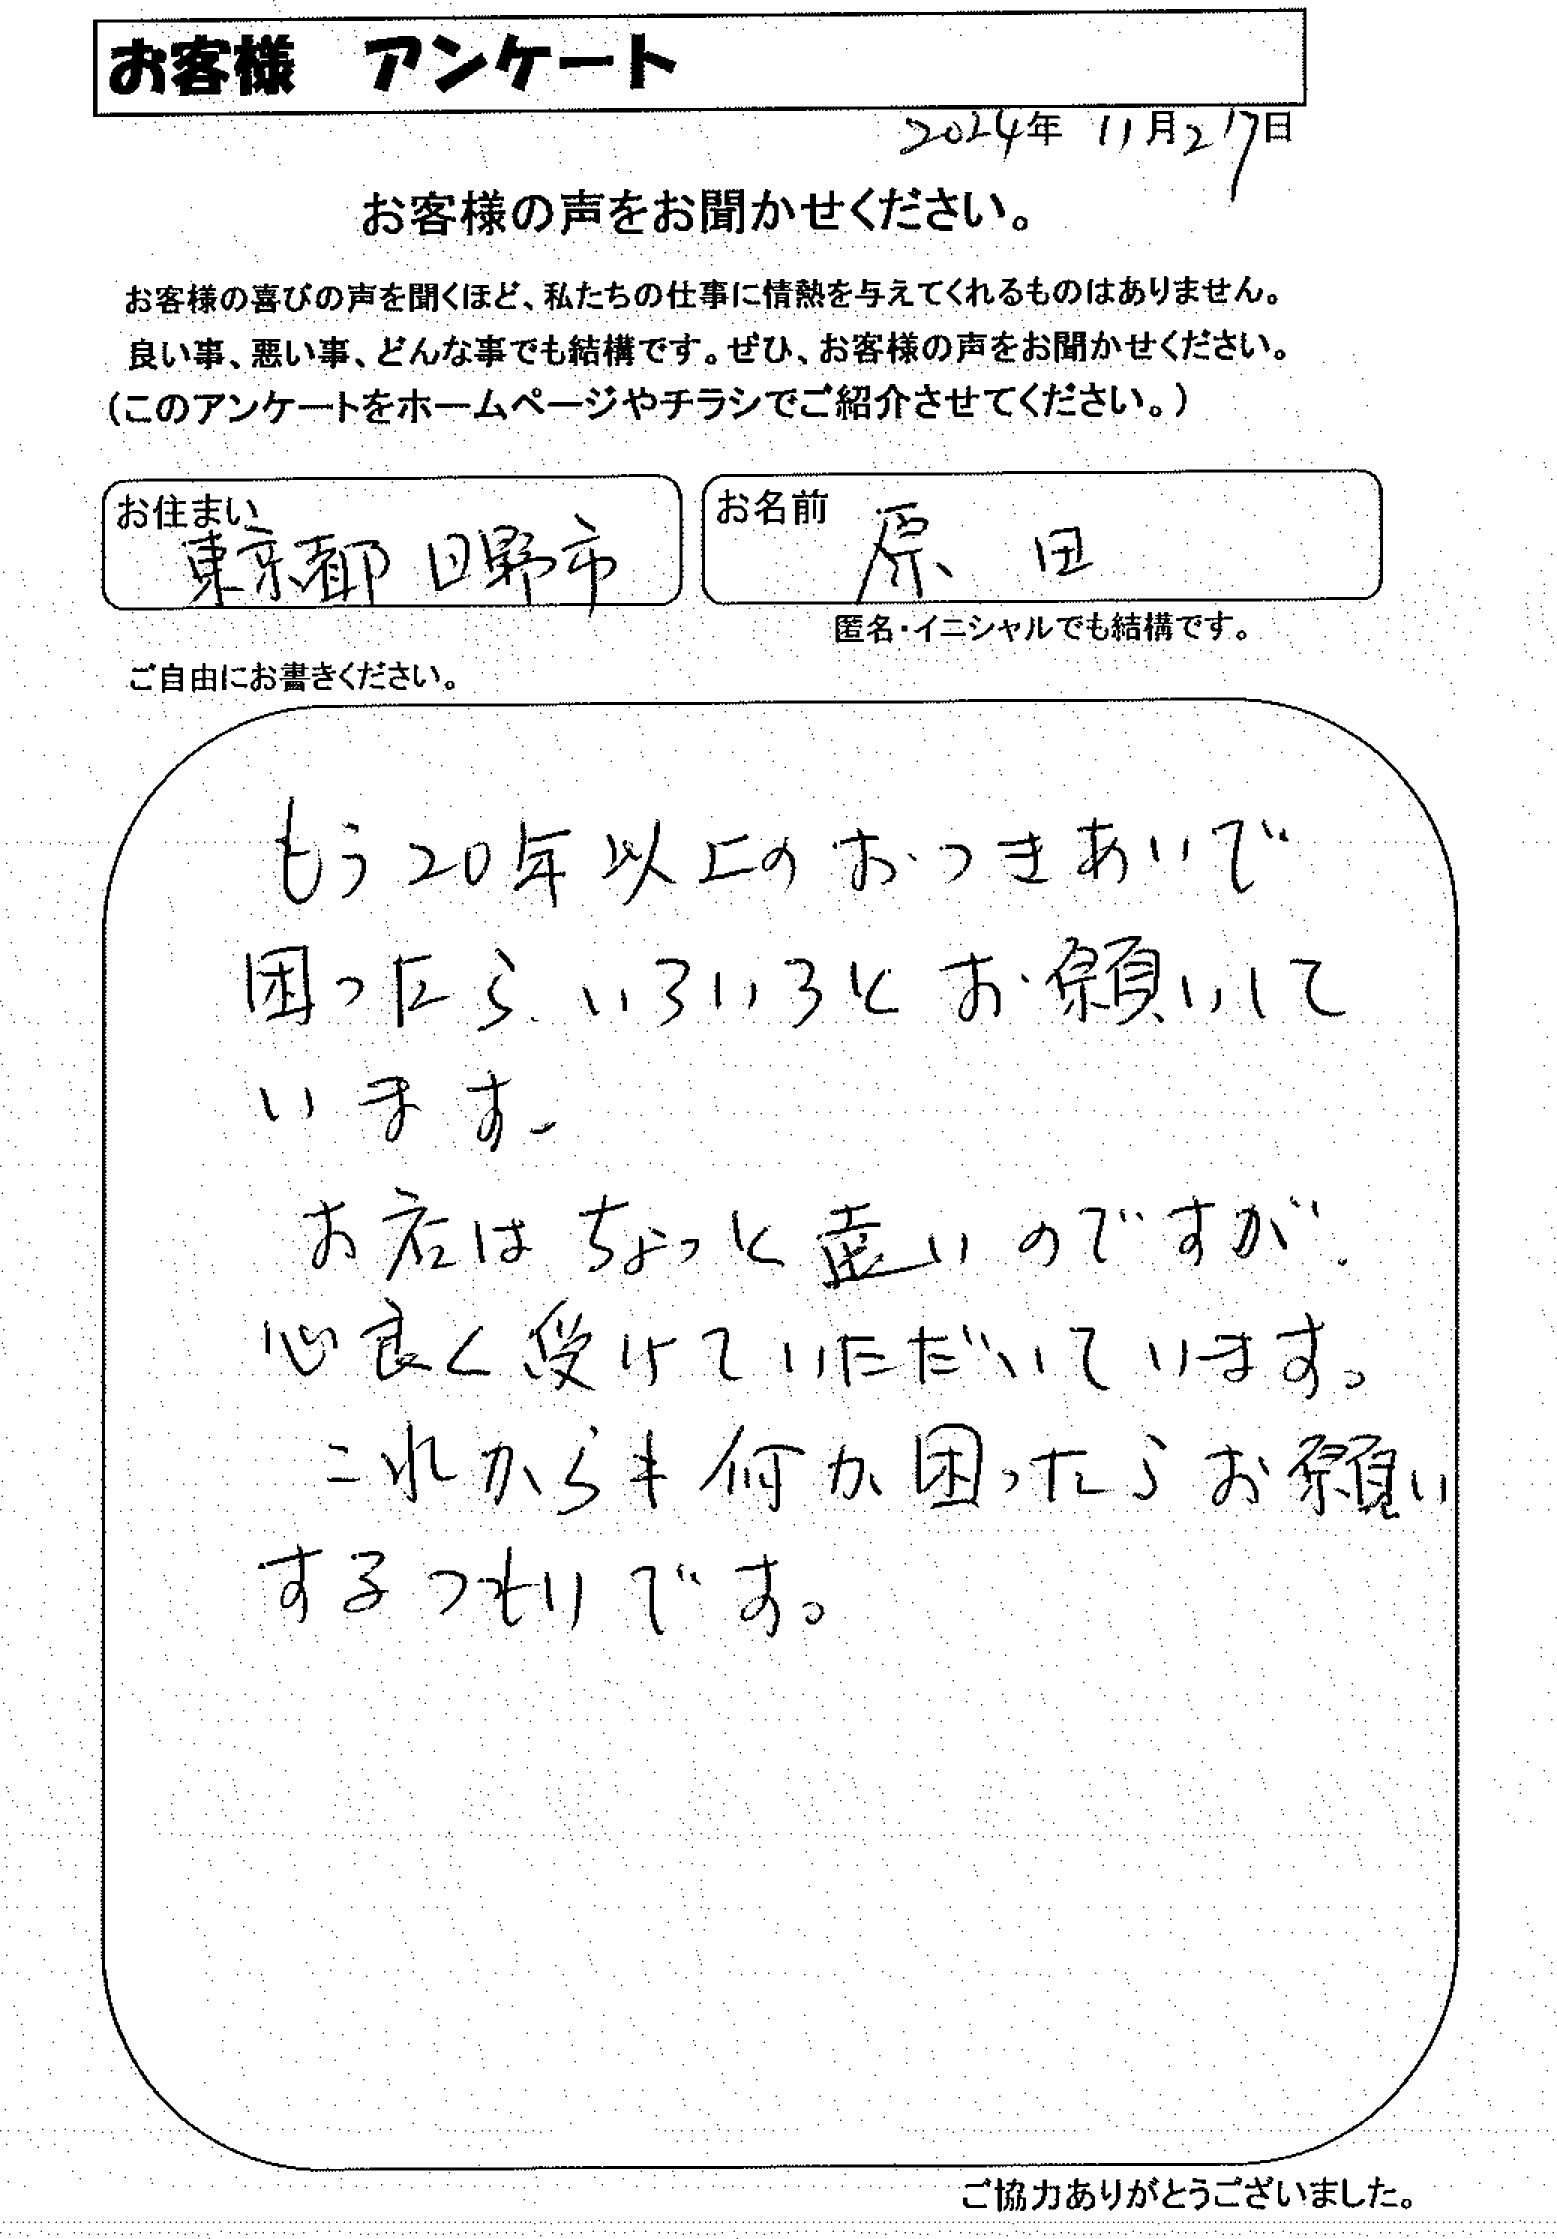 お客様　アンケート
2024年 11月27日
お客様の声をお聞かせください。
お客様の喜びの声を聞くほど、私たちの仕事に情熱を与えてくれるものはありません。
良い事、悪い事、どんな事でも結構です。ぜひ、お客様の声をお聞かせください。
（このアンケートをホームページやチラシでご紹介させてください。）
お住まい
東京都 日野市
お名前
原 田
匿名・イニシャルでも結構です。
ご自由にお書きください。
もう20年以上のおつきあいで
困ったら、いろいろとお願いして
います。
お店はちょっと遠いのですが、
心良く受けていただいています。
これからも何か困ったらお願い
するつもりです。
ご協力ありがとうございました。